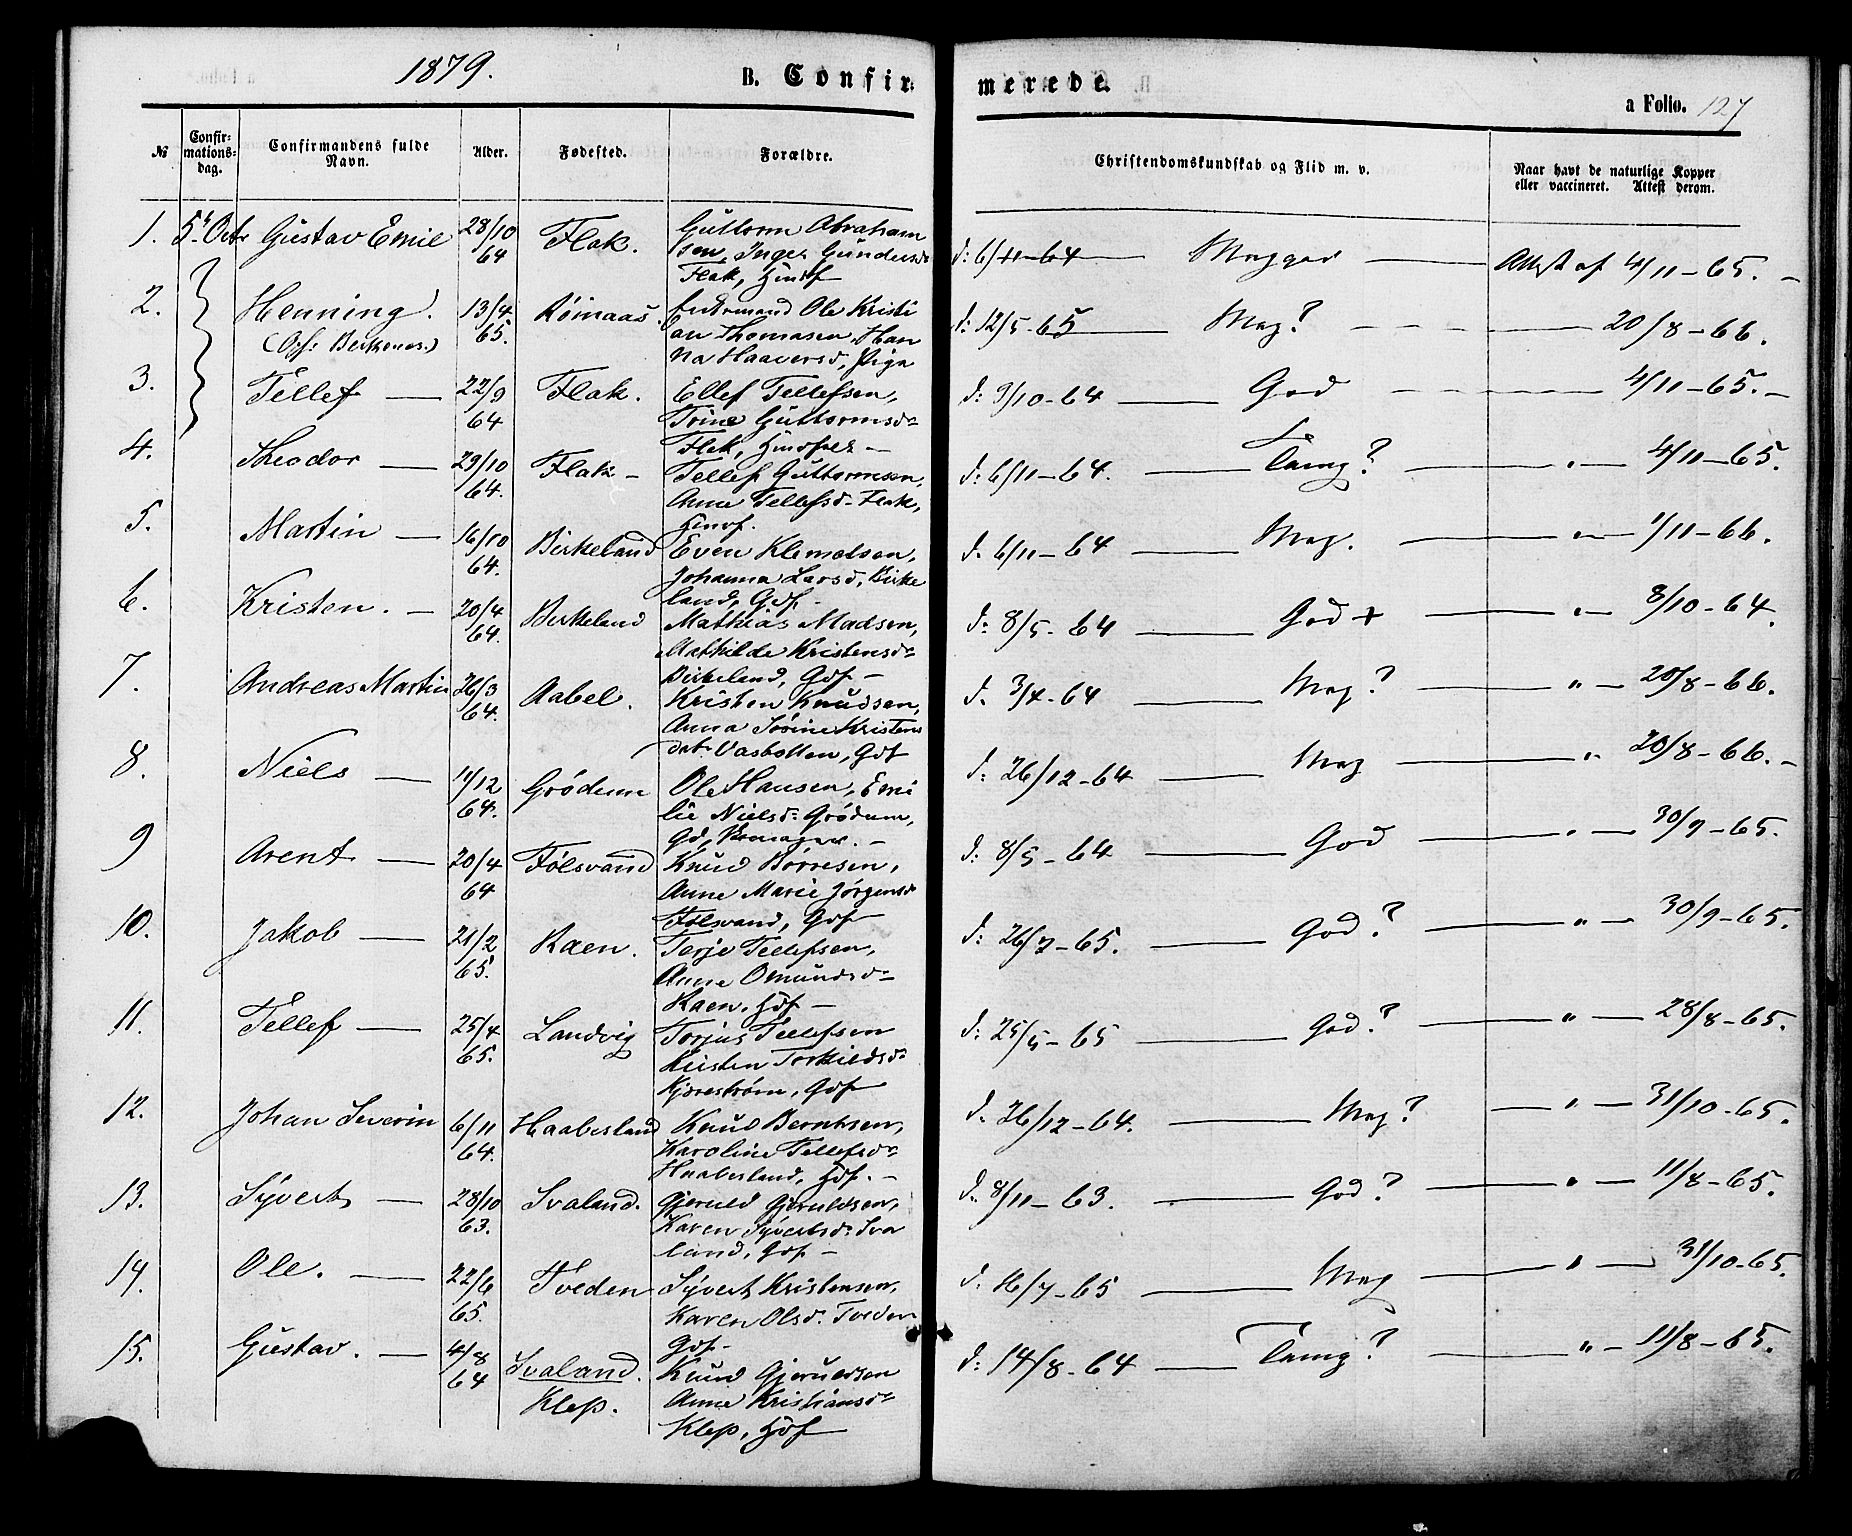 1879.
B. Confirmerede.
a Folio. 127
№ Confirmationsdag. Confirmandens fulde Navn. Alder. Fødested. Forældre. Christendomskundskab og Flid m. v. Naar havt de naturlige Kopper eller vaccineret. Attest derom.
1. 5t Octr Gustav Emil 28/10 64 Flak. Guttorm Abrahamsen, Inger Gundersd: Flak, d: 6/11-64 Meg god Attest af 4/11-65.
2. Henning. (Opf: Birkenes.) 13/4 65. Røinaas. Ole Kristian Thomasen, Hanna Haaversd, Pige d: 12/5-65 Meg? 20/8-66.
3. Tellef 22/9 64 Flak. Ellef Tellefsen, Trine Guttormsd: Flak, d: 9/10-64 God 4/11-65.
4. Theodor 29/10 64. Flak Tellef Guttormsen, Anne Tellefsd: Flak, d: 6/11-64. Tamg? " 4/11-65.
5. Martin 16/10 64. Birkeland Even Klemetsen, Johanna Larsd, Birkeland, Gdf. d: 6/11-64 Meg. " 1/11-66.
6. Kristen. 20/4 64. Birkeland Mathias Madsen, Mathilde Kristensd: Birkeland, Gdf d: 8/5-64 God + " 8/10-64.
7. Andreas Martin 26/3 64. Aabel. Kristen Knudsen, Anna Sørine Kristensdat: Vasbotten, Gdf d: 3/4-64 Meg? " 20/8-66.
8. Niels 11/12 64. Grødum Ole Hansen, Emilie Nielsd: Grødum, d: 26/12-64 Meg " 20/8-66.
9 Arent 20/4 64 Følsvand Knud Børresen, Anne Marie Jørgensd Følsvand, Gdf d: 8/5-64 God " 30/9-65.
10. Jakob 21/2 65. Kaen. Terje Tellefsen, Anne Omundsd: Kaen, Hdf d: 26/7-65. God? " 30/9-65.
11. Tellef 25/4 65. Landvig Torjus Tellefsen Kirsten Torkildsd: Kjørestrøm, Gdf d: 25/5-65 God? " 28/8-65.
12. Johan Severin 6/11 64. Haabesland Knud Berntsen, Karoline Tellefsd: Haabesland, Hdf. d: 26/12-64. Meg? " 31/10-65.
13. Syvert 28/10 63. Svaland. Gjeruld Gjeruldsen, Karen Syvertsd: Svaland, Gdf d: 8/11-63. God? " 11/8-65.
14. Ole. 22/6 65. Tveden Syvert Kristensen, Karen Olsd: Tveden Gdf. d: 16/7-65 Meg " 31/10-65.
15. Gustav. 4/8 64 Svaland. Klep. Knud Gjeruldsen Anne Kristiansd: Klep, Hdf d: 14/8-64 Tamg? " 11/8-65.